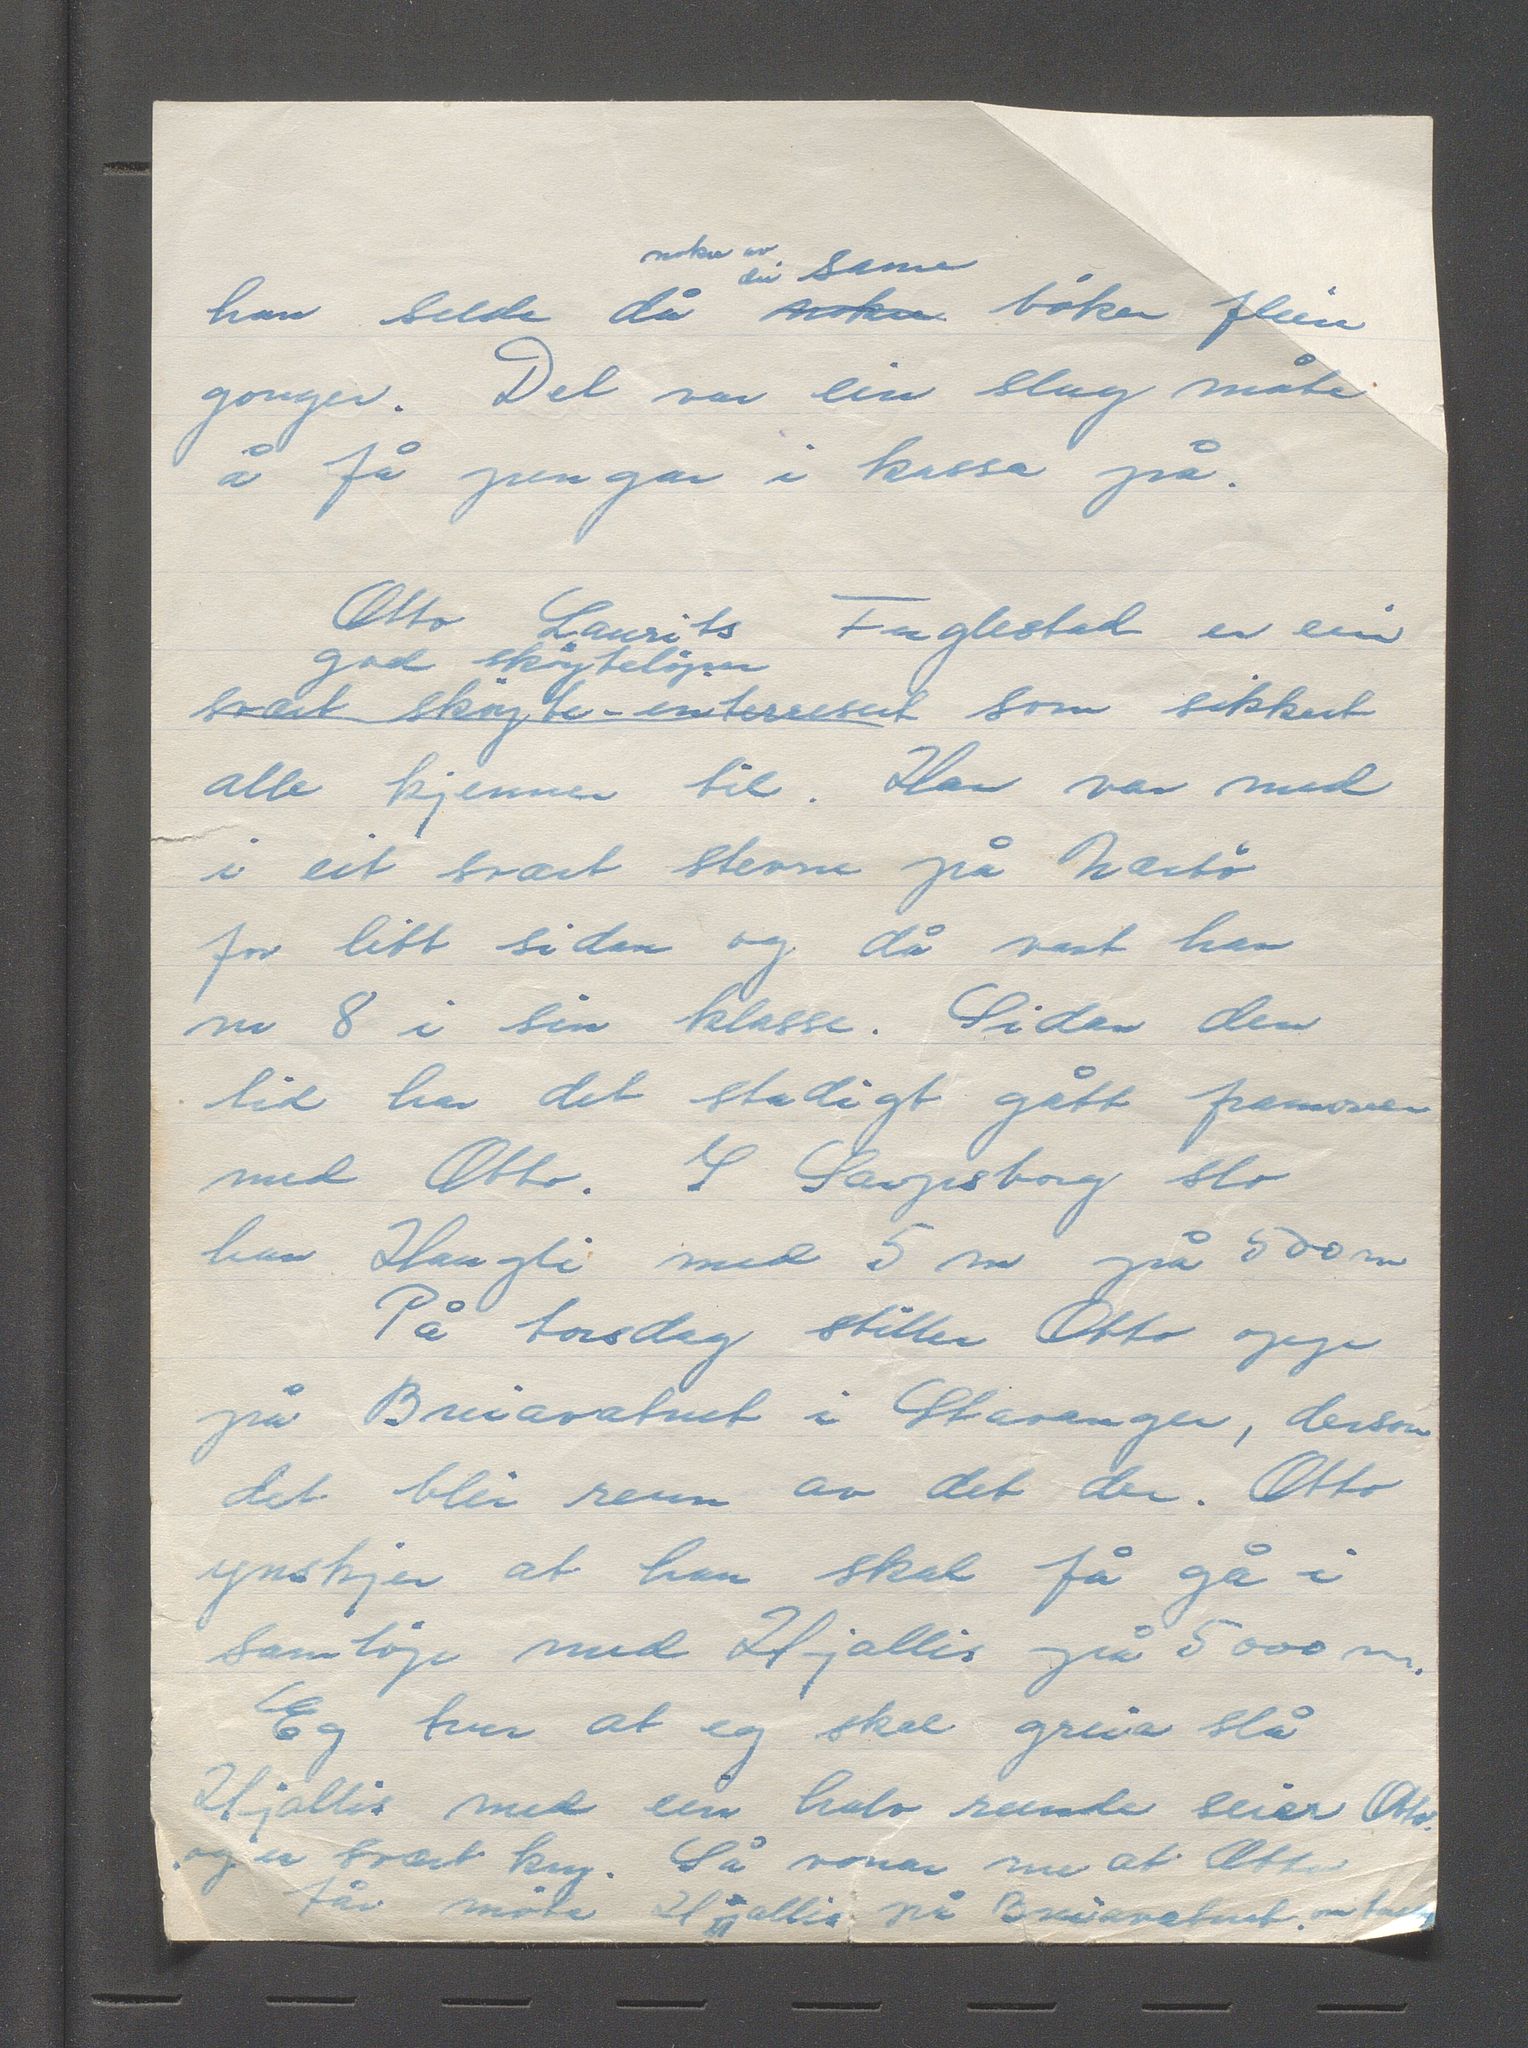 noku av
dei same
han selde då noku bóker fleire
gonger. Det var ein slug måte
å få pengar i kassa på.
Otto Laurits Fuglestad er ein
god sköytelöper
svært sköyte-interresert som sikkert
alle kjenner til. Han var med
i eit svært stevne på Nærbö
for litt sidan og då vart han
nr 8 i sin klasse. Sidan den
tid har det stadigt gått framover
med Otto. I Sarpsborg slo
han Haugli med 5 m på 500 m
På torsdag stiller Otto opp
på Breiavatnet i Stavanger, dersom
det blir renn av det der. Otto
ynskjer at han skal få gå i
samlöp med Hjallis på 5000 m.
Eg trur at eg skal greia slå
Hjallis med ein halv runde seier Otto.
og er svært kry. Så vonar me at Otto
får möte Hjallis på Breiavatnet.